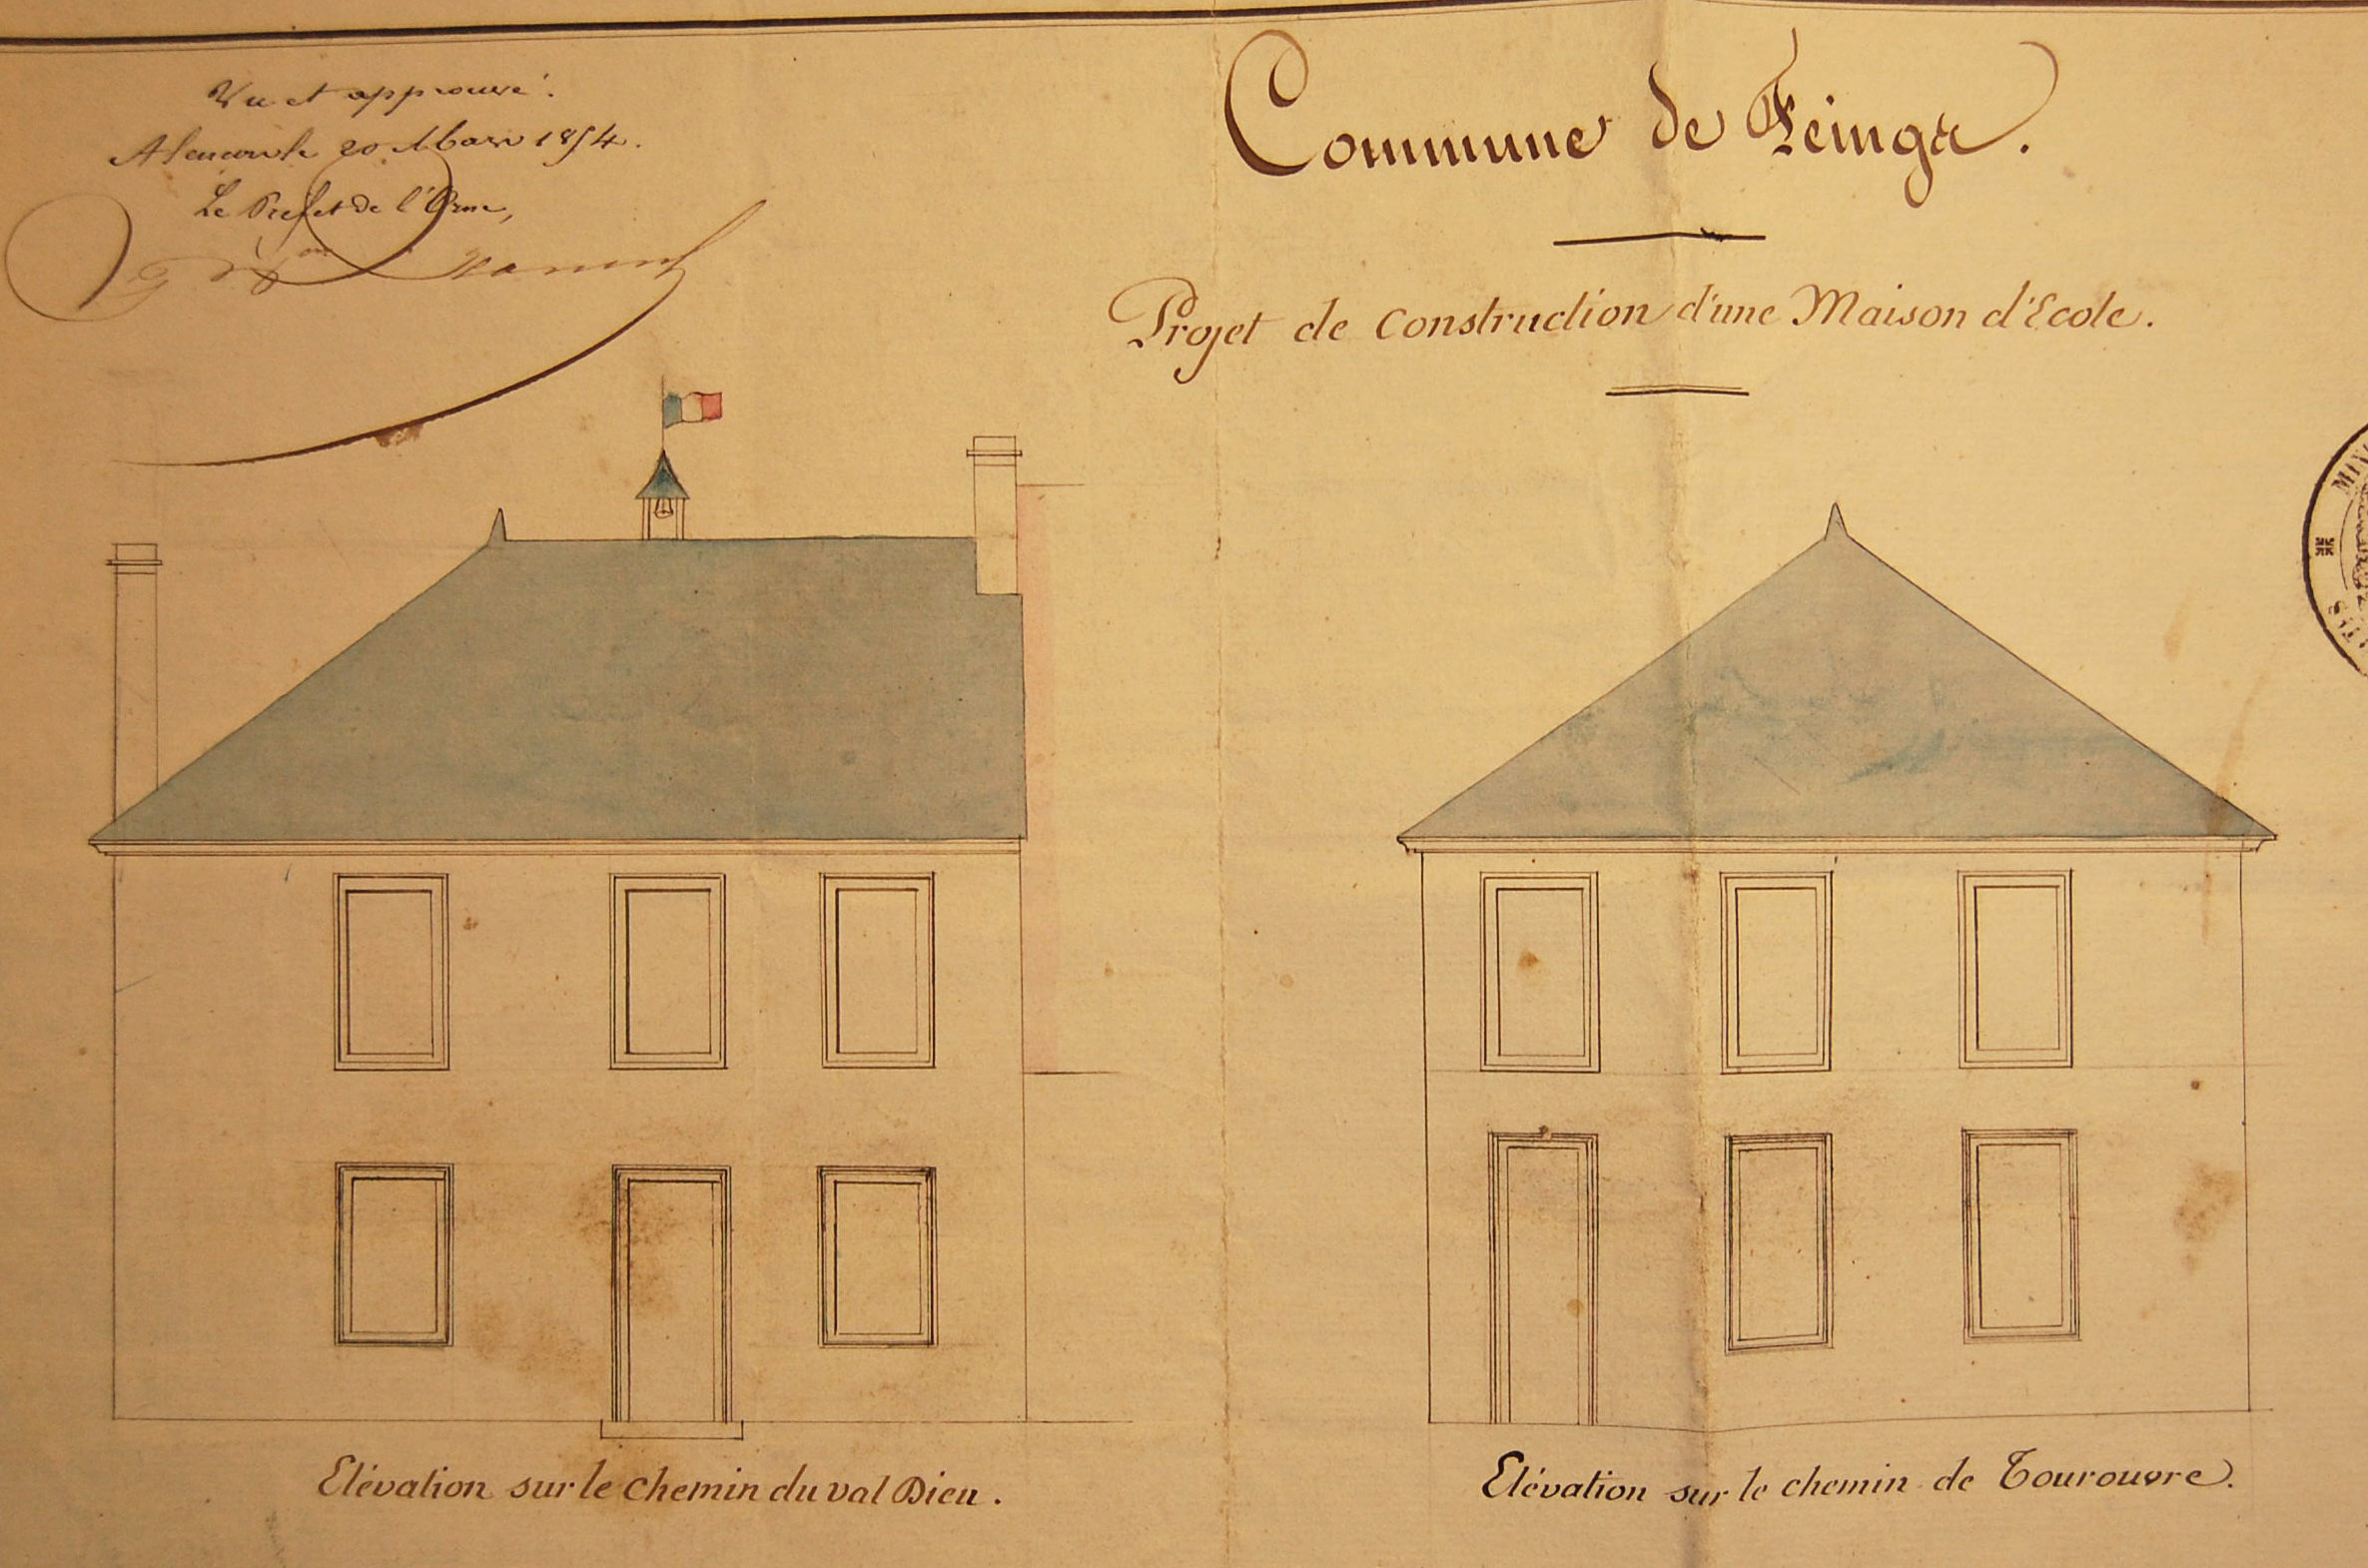 Vu et approuvé.
Alençon le 20 Mars 1854.
Le Préfet de l'Orne,
Commune de Feings.
Projet de Construction d'une Maison d'Ecole.
Elévation sur le Chemin du val Dieu.
Elévation sur le chemin de Tourouvre.